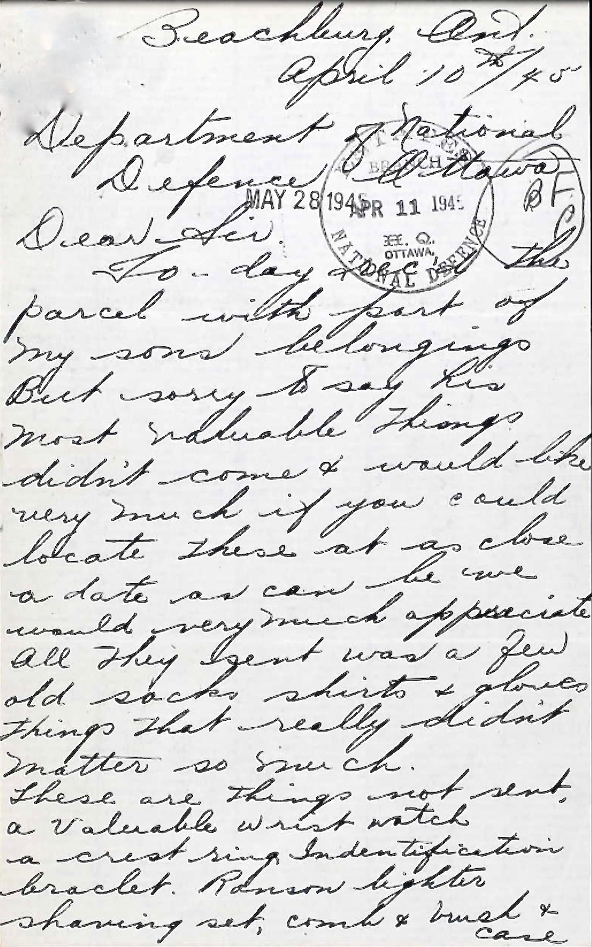 Beachburg, Ont.
April 10th/45
Department of National
Defence, Ottawa
BFC
MAY 28 1945
ESTATES
BRANCH
APR 11 1945
H. Q.
OTTAWA,
NATIONAL DEFENCE
Dear Sir.
To-day I rec'd the
parcel with part of
my sons belongings
But sorry to say his
most valuable things
didn't come & would like
very much if you could
locate these at as close
a date as can be we
would very much appreciate
All they sent was a few
old socks shirts & gloves
things that really didn't
matter so much.
These are things not sent.
a Valuable wrist watch
a crest ring, Indentification
braclet. Ronson lighter
shaving set, comb & brush &
case